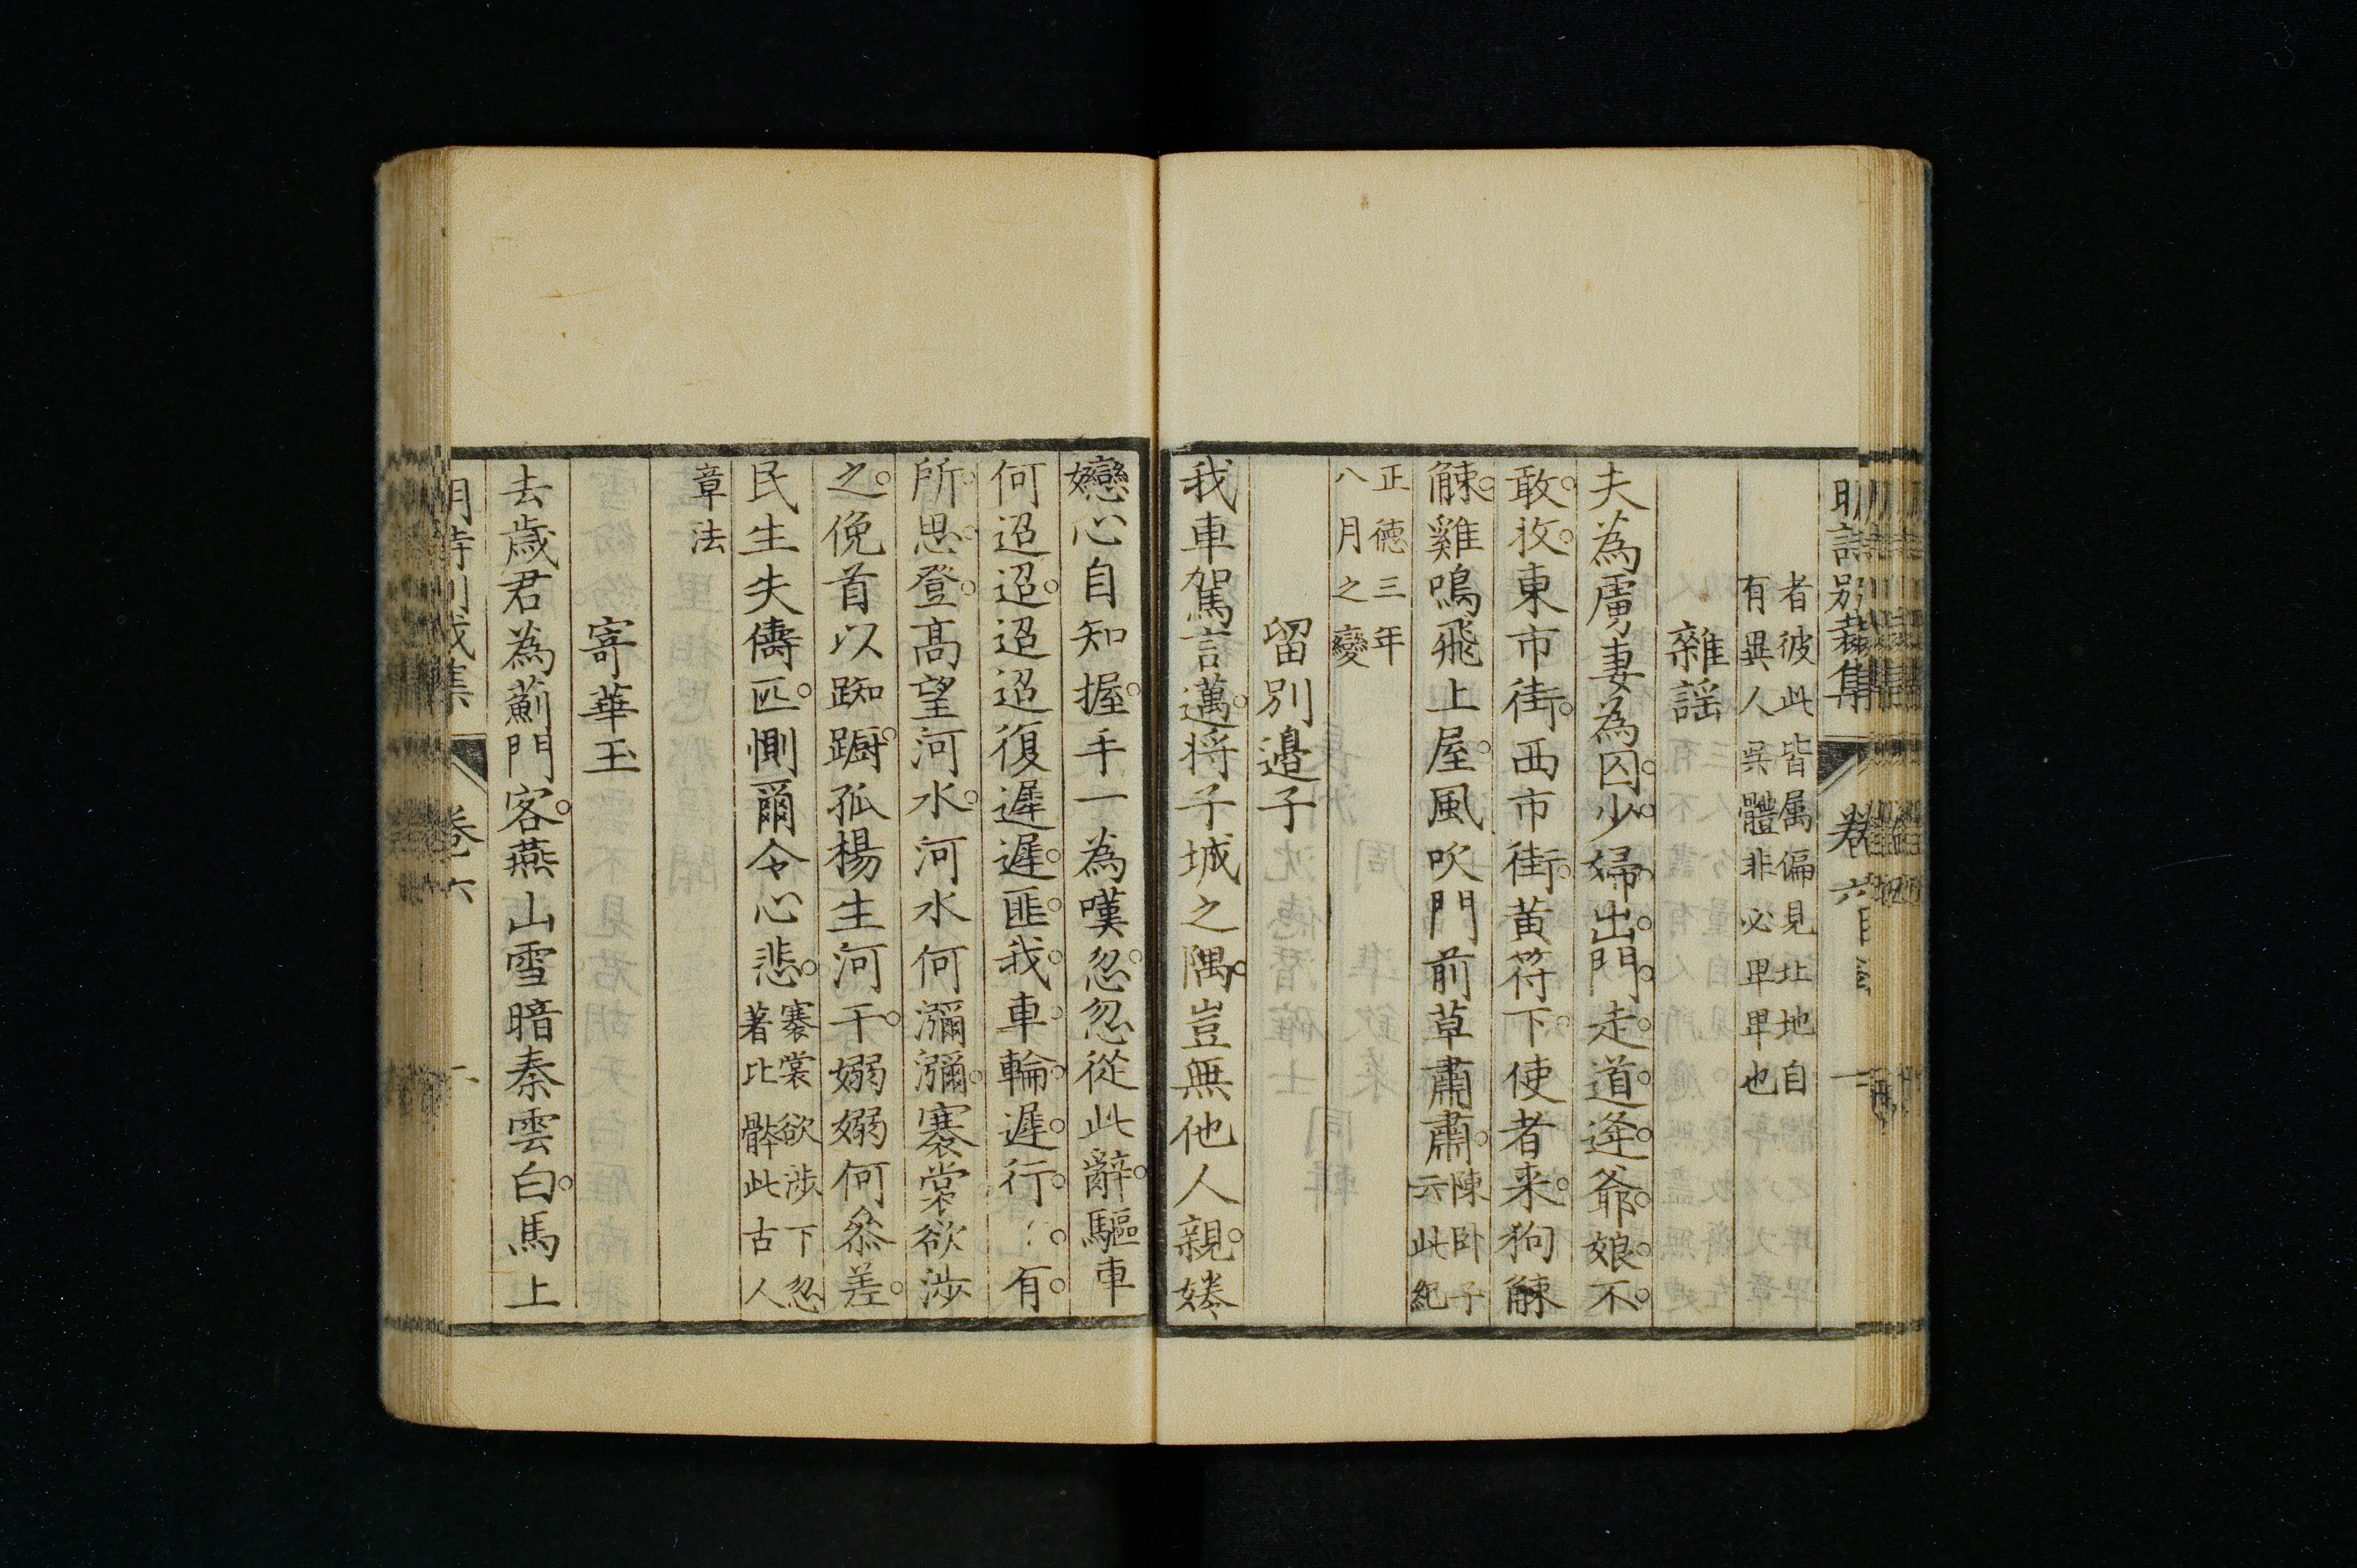 明詩別裁集 卷六 一
者彼此皆属偏見北地自
有異人吳體非必卑卑也
雜謡
夫為虜妻為囚少婦出門走道逢爺娘不
敢收東市街西市街黄符下使者来狗觫
觫雞鳴飛上屋風吹門前草肅肅陳卧子
云此紀
正德三年
八月之變
留別邉子
我車駕言邁将子城之隅豈無他人親婘
戀心自知握手一為嘆忽忽從此辭驅車
何迢迢迢迢復遲遲匪我車輪遲行有
所思登髙望河水河水何瀰瀰褰裳欲涉
之俛首以踟蹰孤楊生河干嫋嫋何叅差
民生失儔匹惻爾令心悲褰裳欲涉下忽
著比體此古人
章法
寄華玉
去歳君為薊門客燕山雪暗秦雲白馬上
卷六